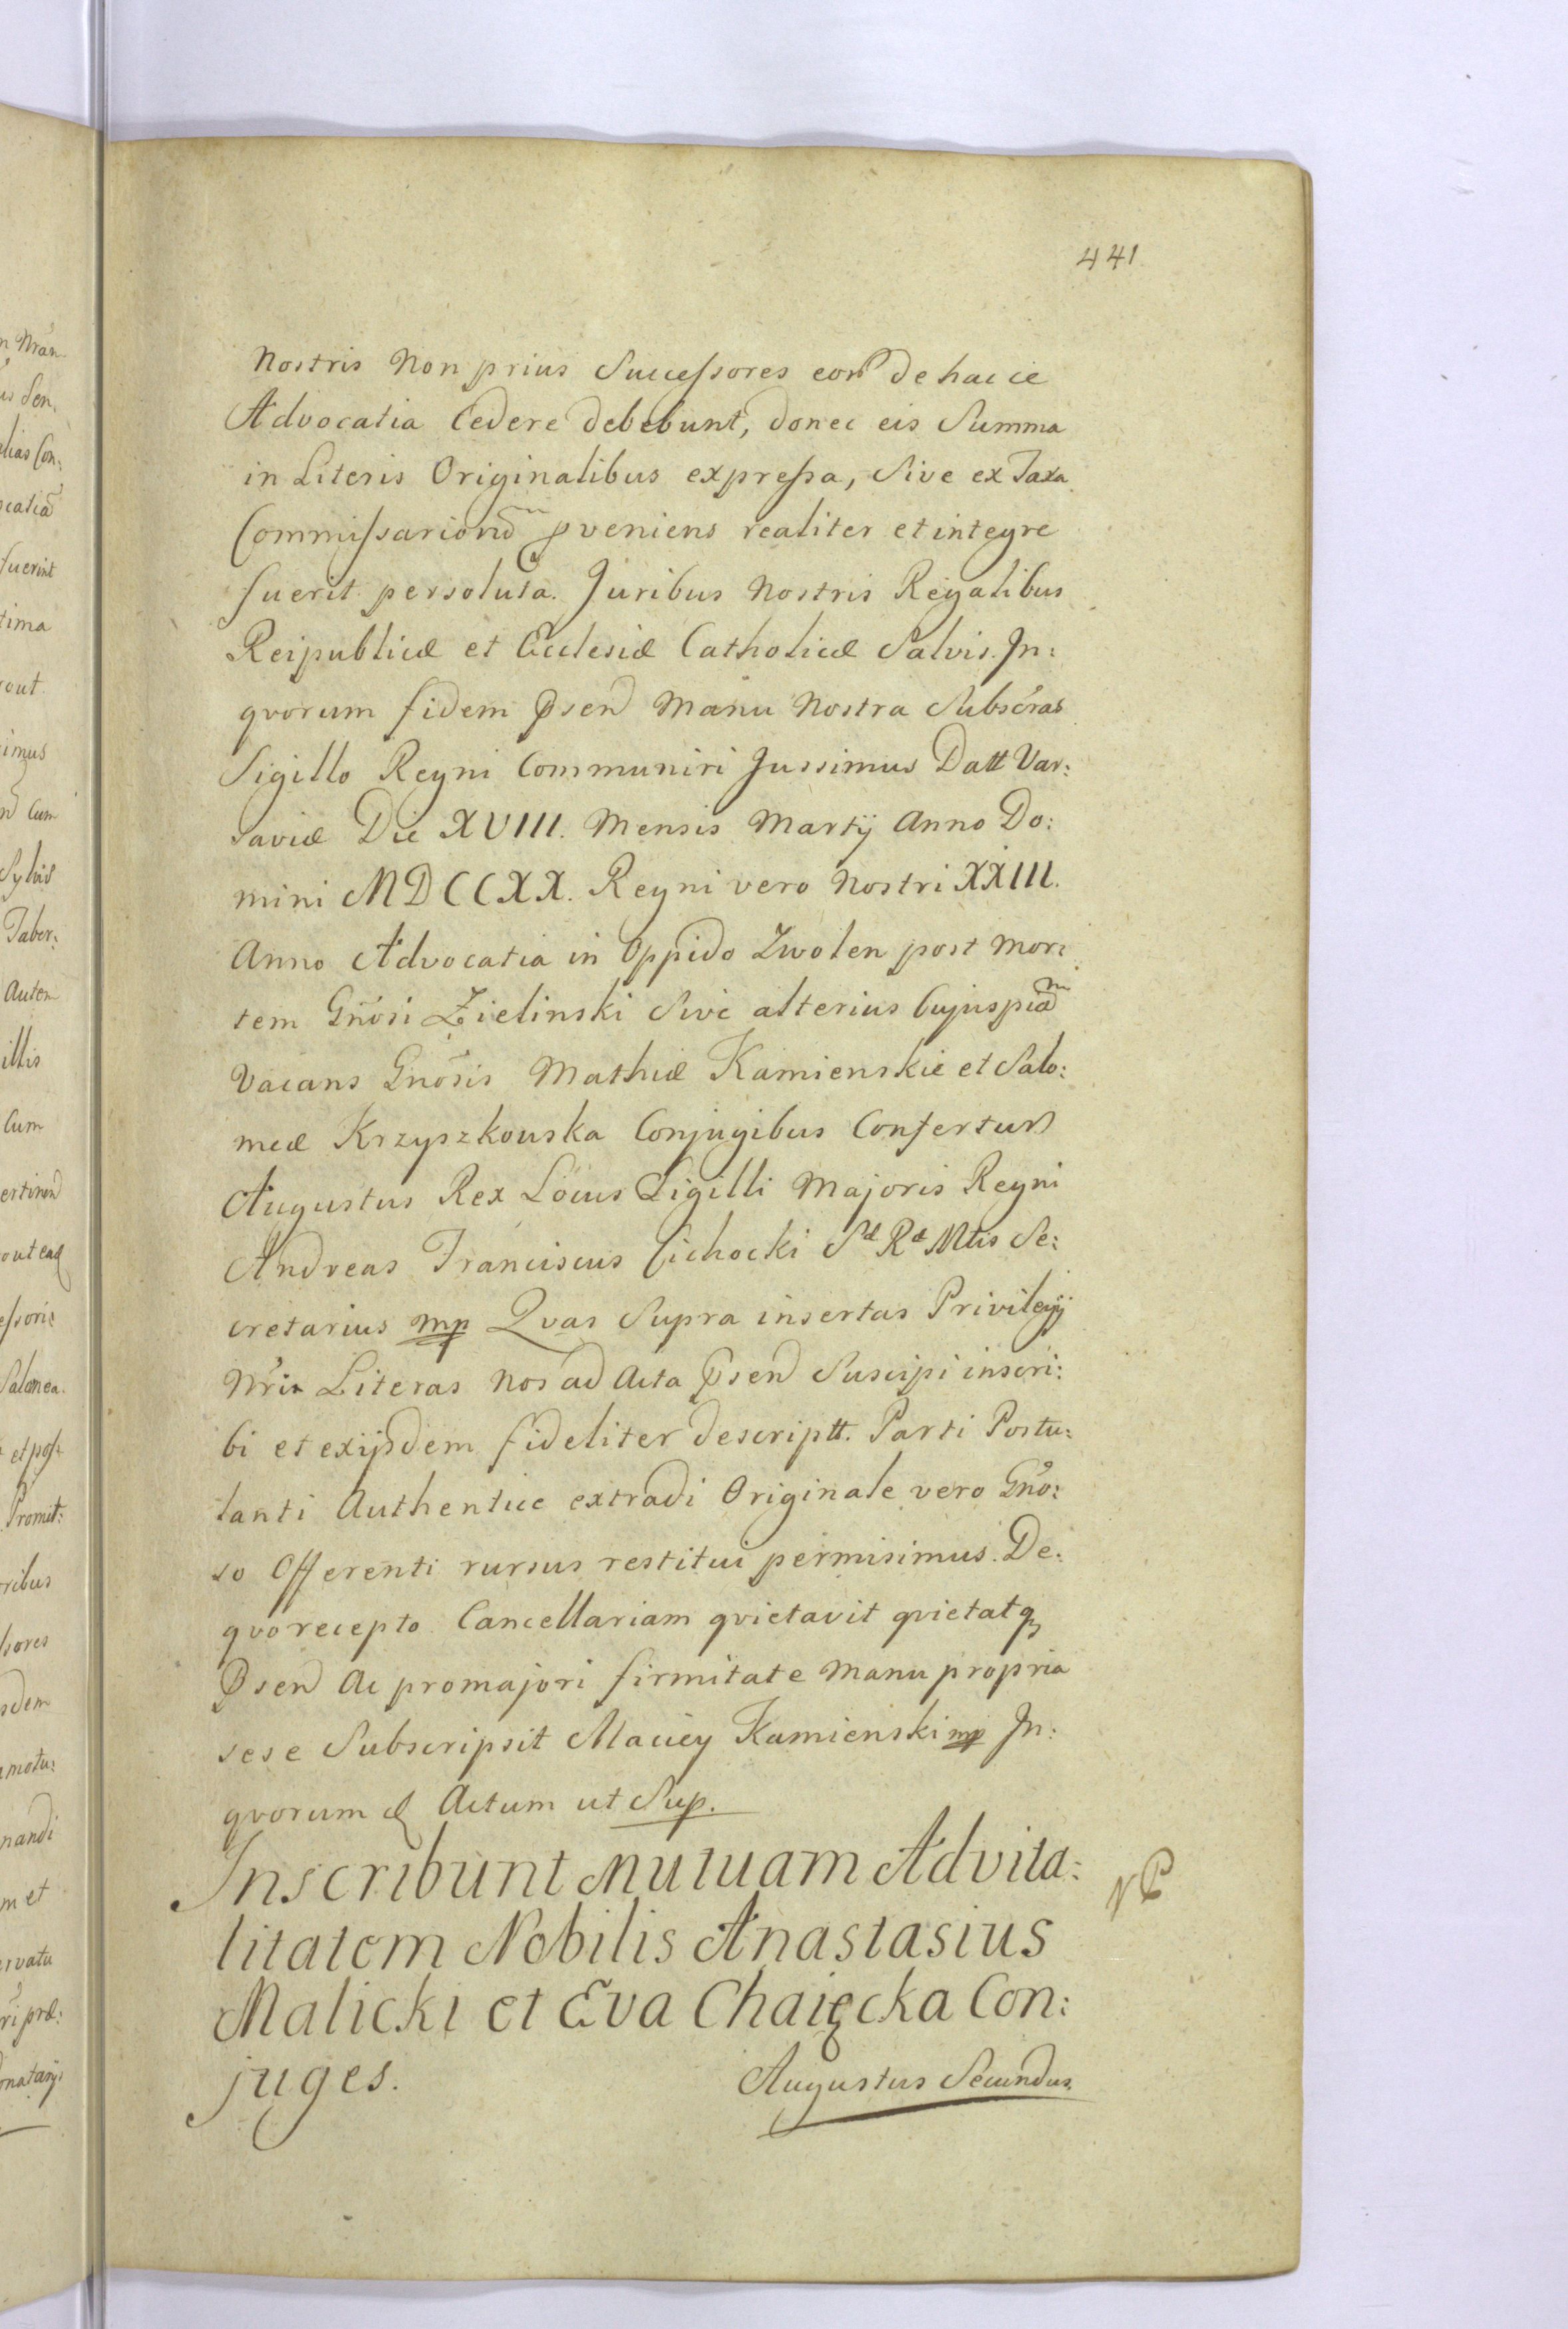 441
Nostris Non prius Successores eorũ de hacce
Advocatia Cedere debebunt, donec eis Summa
in Literis Originalibus expressa, Sive ex Taxa
Commissariorũ pveniens realiter et integre
fuerit persoluta. Juribus Nostris Regalibus
Reipublicæ et Ecclesiæ Catholicæ Salvis. In:
qvorum fidem Psend Manu Nostra Subscras
Sigillo Regni Communiri Jussimus Datt Var:
saviæ Die XVIII. Mensis Martij Anno Do:
mini MDCCXX. Regni vero Nostri XXIII.
Anno Advocatia in Oppido Zwolen post mor:
tem Gnosi Zielinski Sive alterius Cujuspiam
Vacans Gnosis Mathiæ Kamienskie et Salo:
meæ Krzyszkouska Conjugibus Confertur
Augustus Rex Locus Sigilli Majoris Regni
Andreas Franciscus Cichocki Sæ Ræ Mtis Se:
cretarius mp Qvas Supra insertas Privilegij
Nri Literas Nos ad Acta Psend Suscipi inscri:
bi et exijsdem fideliter descriptt. Parti Postu:
lanti Authentice extradi Originale vero Gno:
so Offerenti rursus restitui permisimus. De:
qvo recepto Cancellariam qvietavit qvietatq
Psend Ac promajori firmitate Manu propria
sese Subscripsit Maciey Kamienski mp In:
qvorum & Actum ut Sup.
Inscribunt Mutuam Advita:
litatem Nobilis Anastasius
Malicki et Eva Chaięcka Con:
juges.
Augustus Secundus